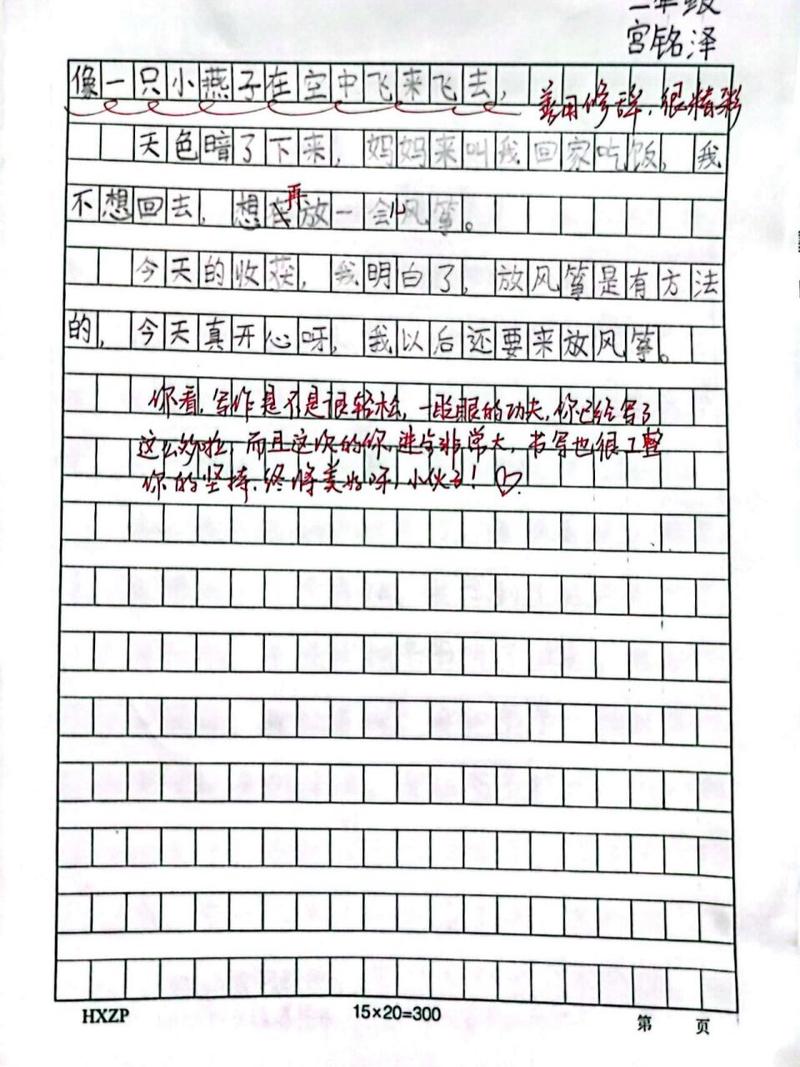 二年级
宫铭泽
像一只小燕子在空中飞来飞去，
善用修辞，很精彩
天色暗了下来，妈妈来叫我回家吃饭，我
再
不想回去，想在放一会儿风筝。
今天的收获，我明白了，放风筝是有方法
的，今天真开心呀，我以后还要来放风筝。
你看，写作是不是很轻松，一眨眼的功夫，你已经写了
这么多啦，而且这次的你进步非常大，书写也很工整
你的坚持，终将美好呀，小伙子！♡
HXZP
15×20=300
第 页